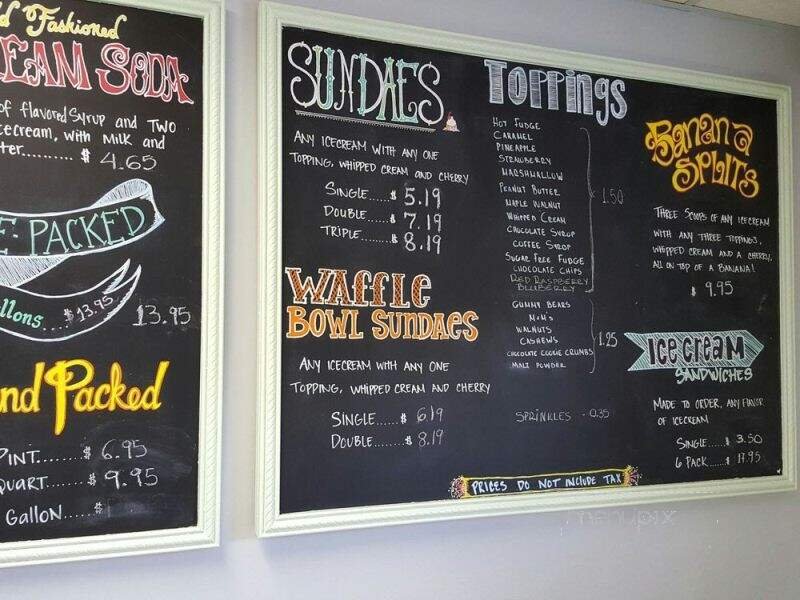 d Fashioned
EAM SODA
of flavored syrup and two
cecream, with milk and
ter.......... $ 4.65
E PACKED
llons. $13.95 13.95
nd Packed
PINT....... $ 6.95
QUART...... $ 9.95
GALLON..... $
SUNDAES
ANY ICECREAM WITH ANY ONE
TOPPING, WHIPPED CREAM AND CHERRY
SINGLE.....$ 5.19
DOUBLE.....$ 7.19
TRIPLE......$ 8.19
WAFFLE
BOWL SUNDAES
ANY ICECREAM WITH ANY ONE
TOPPING, WHIPPED CREAM AND CHERRY
SINGLE.....$ 6.19
DOUBLE......$ 8.19
TOPPINGS
HOT FUDGE
CARAMEL
PINEAPPLE
STRAWBERRY
MARSHMALLOW
PEANUT BUTTER
MAPLE WALNUT
WHIPPED CREAM
CHOCOLATE SYRUP
COFFEE SYRUP
SUGAR FREE FUDGE
CHOCOLATE CHIPS
RED RASPBERRY
BLUEBERRY
1.50
GUMMY BEARS
M&M's
WALNUTS
CASHEWS
CHOCOLATE COOKIE CRUMBS
MALT POWDER
1.25
SPRINKLES - 0.35
BANANA
SPLITS
THREE SCOOPS OF ANY ICECREAM
WITH ANY THREE TOPPINGS,
WHIPPED CREAM AND A CHERRY,
ALL ON TOP OF A BANANA!
$ 9.95
ICE CREAM
SANDWICHES
MADE TO ORDER, ANY FLAVOR
OF ICECREAM
SINGLE.....$ 3.50
6 PACK.....$ 17.95
PRICES DO NOT INCLUDE TAX
menupix